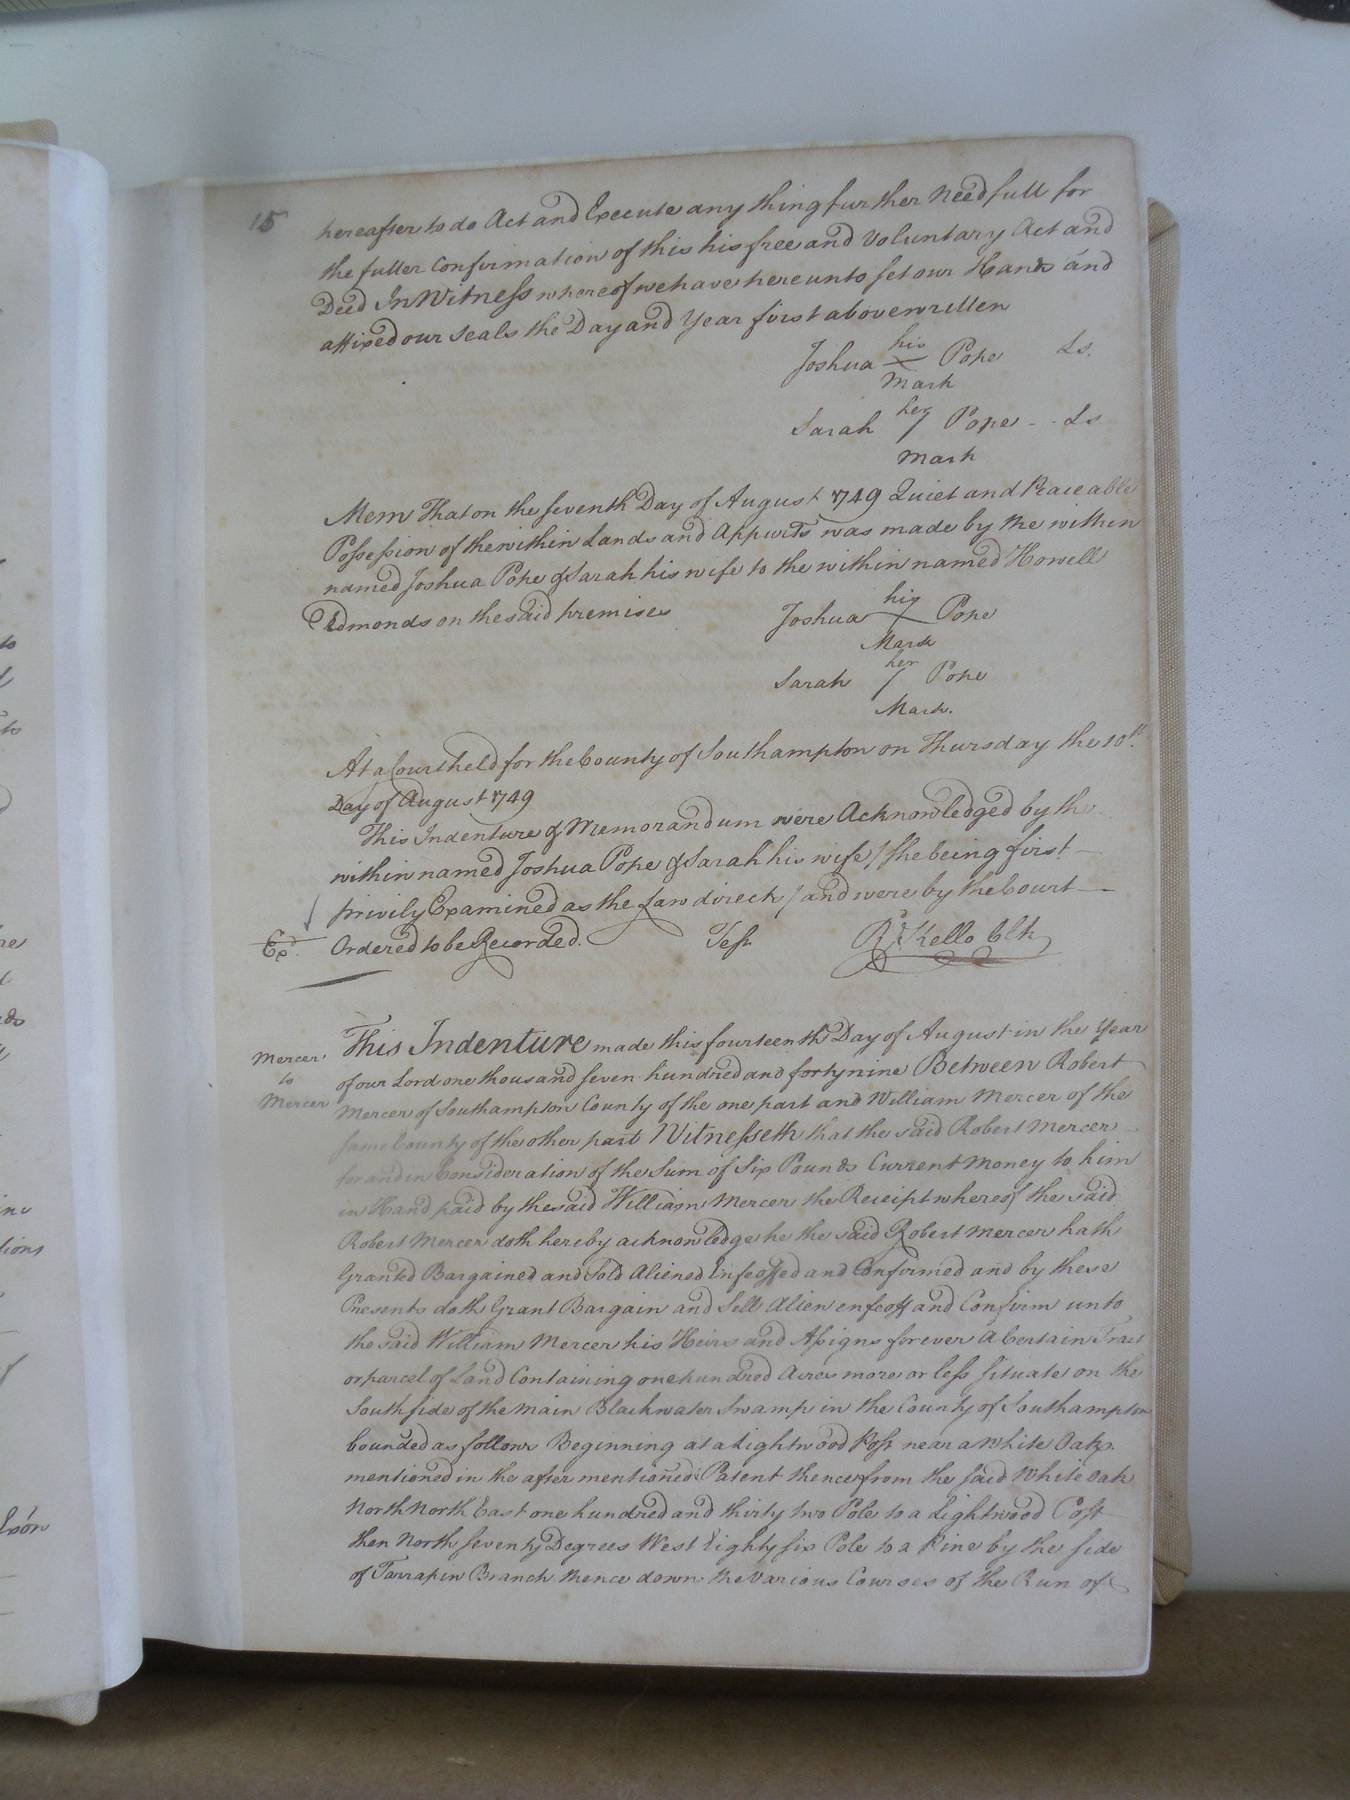 15
hereafter to do Act and Execute any thing further Needfull for
the fuller Confirmation of this his free and Voluntary Act and
Deed In Witness whereof we have hereunto set our Hands and
affixed our Seals the Day and Year first above written
his
Joshua X Pope Ls.
Mark
her
Sarah / Pope Ls
Mark
Mem That on the seventh Day of August 1749 Quiet and Peaceable
Possession of the within Lands and Appurts was made by the within
named Joshua Pope & Sarah his wife to the within named Howell
Edmonds on the said premises
his
Joshua X Pope
Mark
her
Sarah / Pope
Mark.
At a Court held for the County of Southampton on Thursday the 10th.
Day of August 1749
This Indenture & Memorandum were Acknowledged by the
within named Joshua Pope & Sarah his wife / she being first
privily Examined as the Law directs / and were by the Court
Exd. Ordered to be Recorded. Test Rd. Kello Clk
Mercer
to
Mercer
This Indenture made this fourteenth Day of August in the Year
of our Lord one thousand seven hundred and forty nine Between Robert
Mercer of Southampton County of the one part and William Mercer of the
same County of the other part Witnesseth that the said Robert Mercer
for and in Consideration of the Sum of Six Pounds Current Money to him
in Hand paid by the said William Mercer the Receipt whereof the said
Robert Mercer doth hereby acknowledge he the said Robert Mercer hath
Granted Bargained and Sold Aliened Enfeoffed and Confirmed and by these
Presents doth Grant Bargain and Sell Alien enfeoff and Confirm unto
the said William Mercer his Heirs and Assigns forever A Certain Tract
or parcel of Land Containing one hundred Acres more or less situate on the
South side of the main Blackwater Swamp in the County of Southampton
bounded as follows Beginning at a Lightwood Post near a White Oak
mentioned in the after mentioned Patent thence from the said White Oak
North North East one hundred and thirty two Pole to a Lightwood Post
then North seventy Degrees West Eighty six Pole to a Pine by the side
of Tarrapin Branch thence down the Various Courses of the Run of